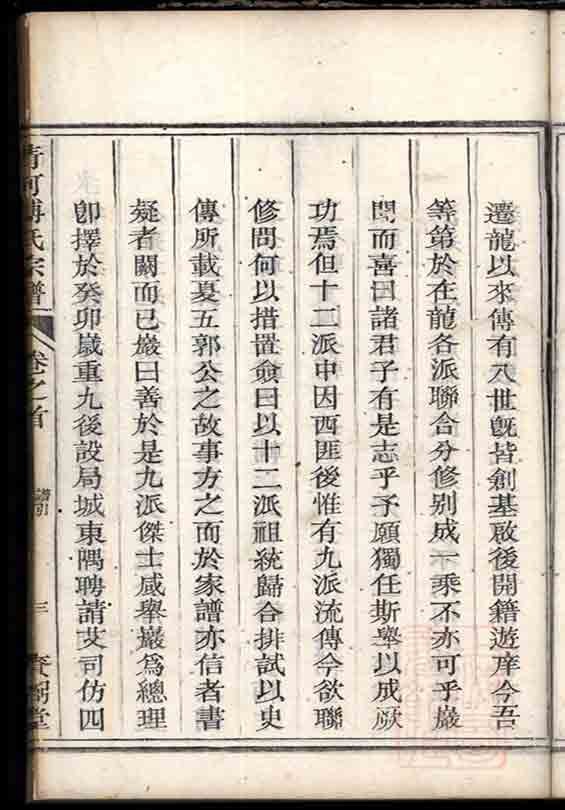 遷龍以來傳有八世旣皆創基啟後開籍遊庠今吾
等第於在龍各派聯合分修別成一乘不亦可乎巖
問而喜曰諸君子有是志乎予願獨任斯舉以成厥
功焉但十二派中因西匪後惟有九派流傳今欲聯
修問何以措置僉曰以十二派祖統歸合排試以史
傳所載夏五郭公之故事方之而於家譜亦信者書
疑者闕而已巖曰善於是九派傑士咸舉巖為總理
卽擇於癸卯嵗重九後設局城東隅聘請艾司仿四
清河傅氏宗譜 卷之首 譜引 三